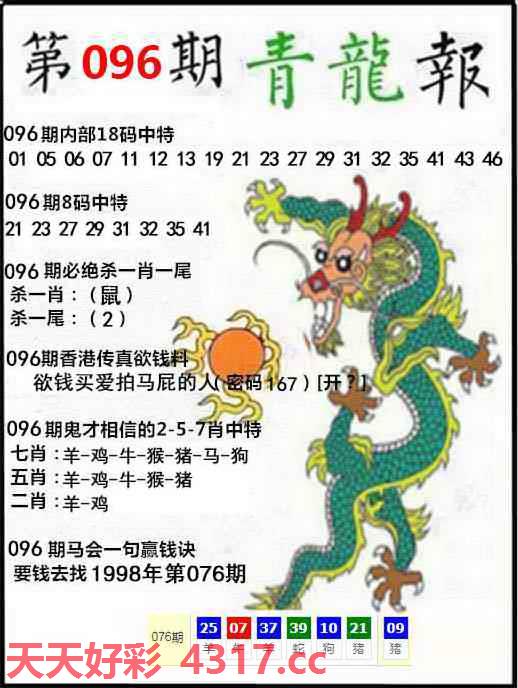 第096期 青龍報
096期内部18码中特
01 05 06 07 11 12 13 19 21 23 27 29 31 32 35 41 43 46
096期8码中特
21 23 27 29 31 32 35 41
096 期必绝杀一肖一尾
杀一肖：(鼠)
杀一尾：(2)
096期香港传真欲钱料
欲钱买爱拍马屁的人(密码167)[开?]
096期鬼才相信的2-5-7肖中特
七肖:羊-鸡-牛-猴-猪-马-狗
五肖:羊-鸡-牛-猴-猪
二肖:羊-鸡
096 期马会一句赢钱诀
要钱去找1998年第076期
076期 25 07 37 39 10 21 09
羊 羊 蛇 狗 猪 猪
天天好彩 4317.cc